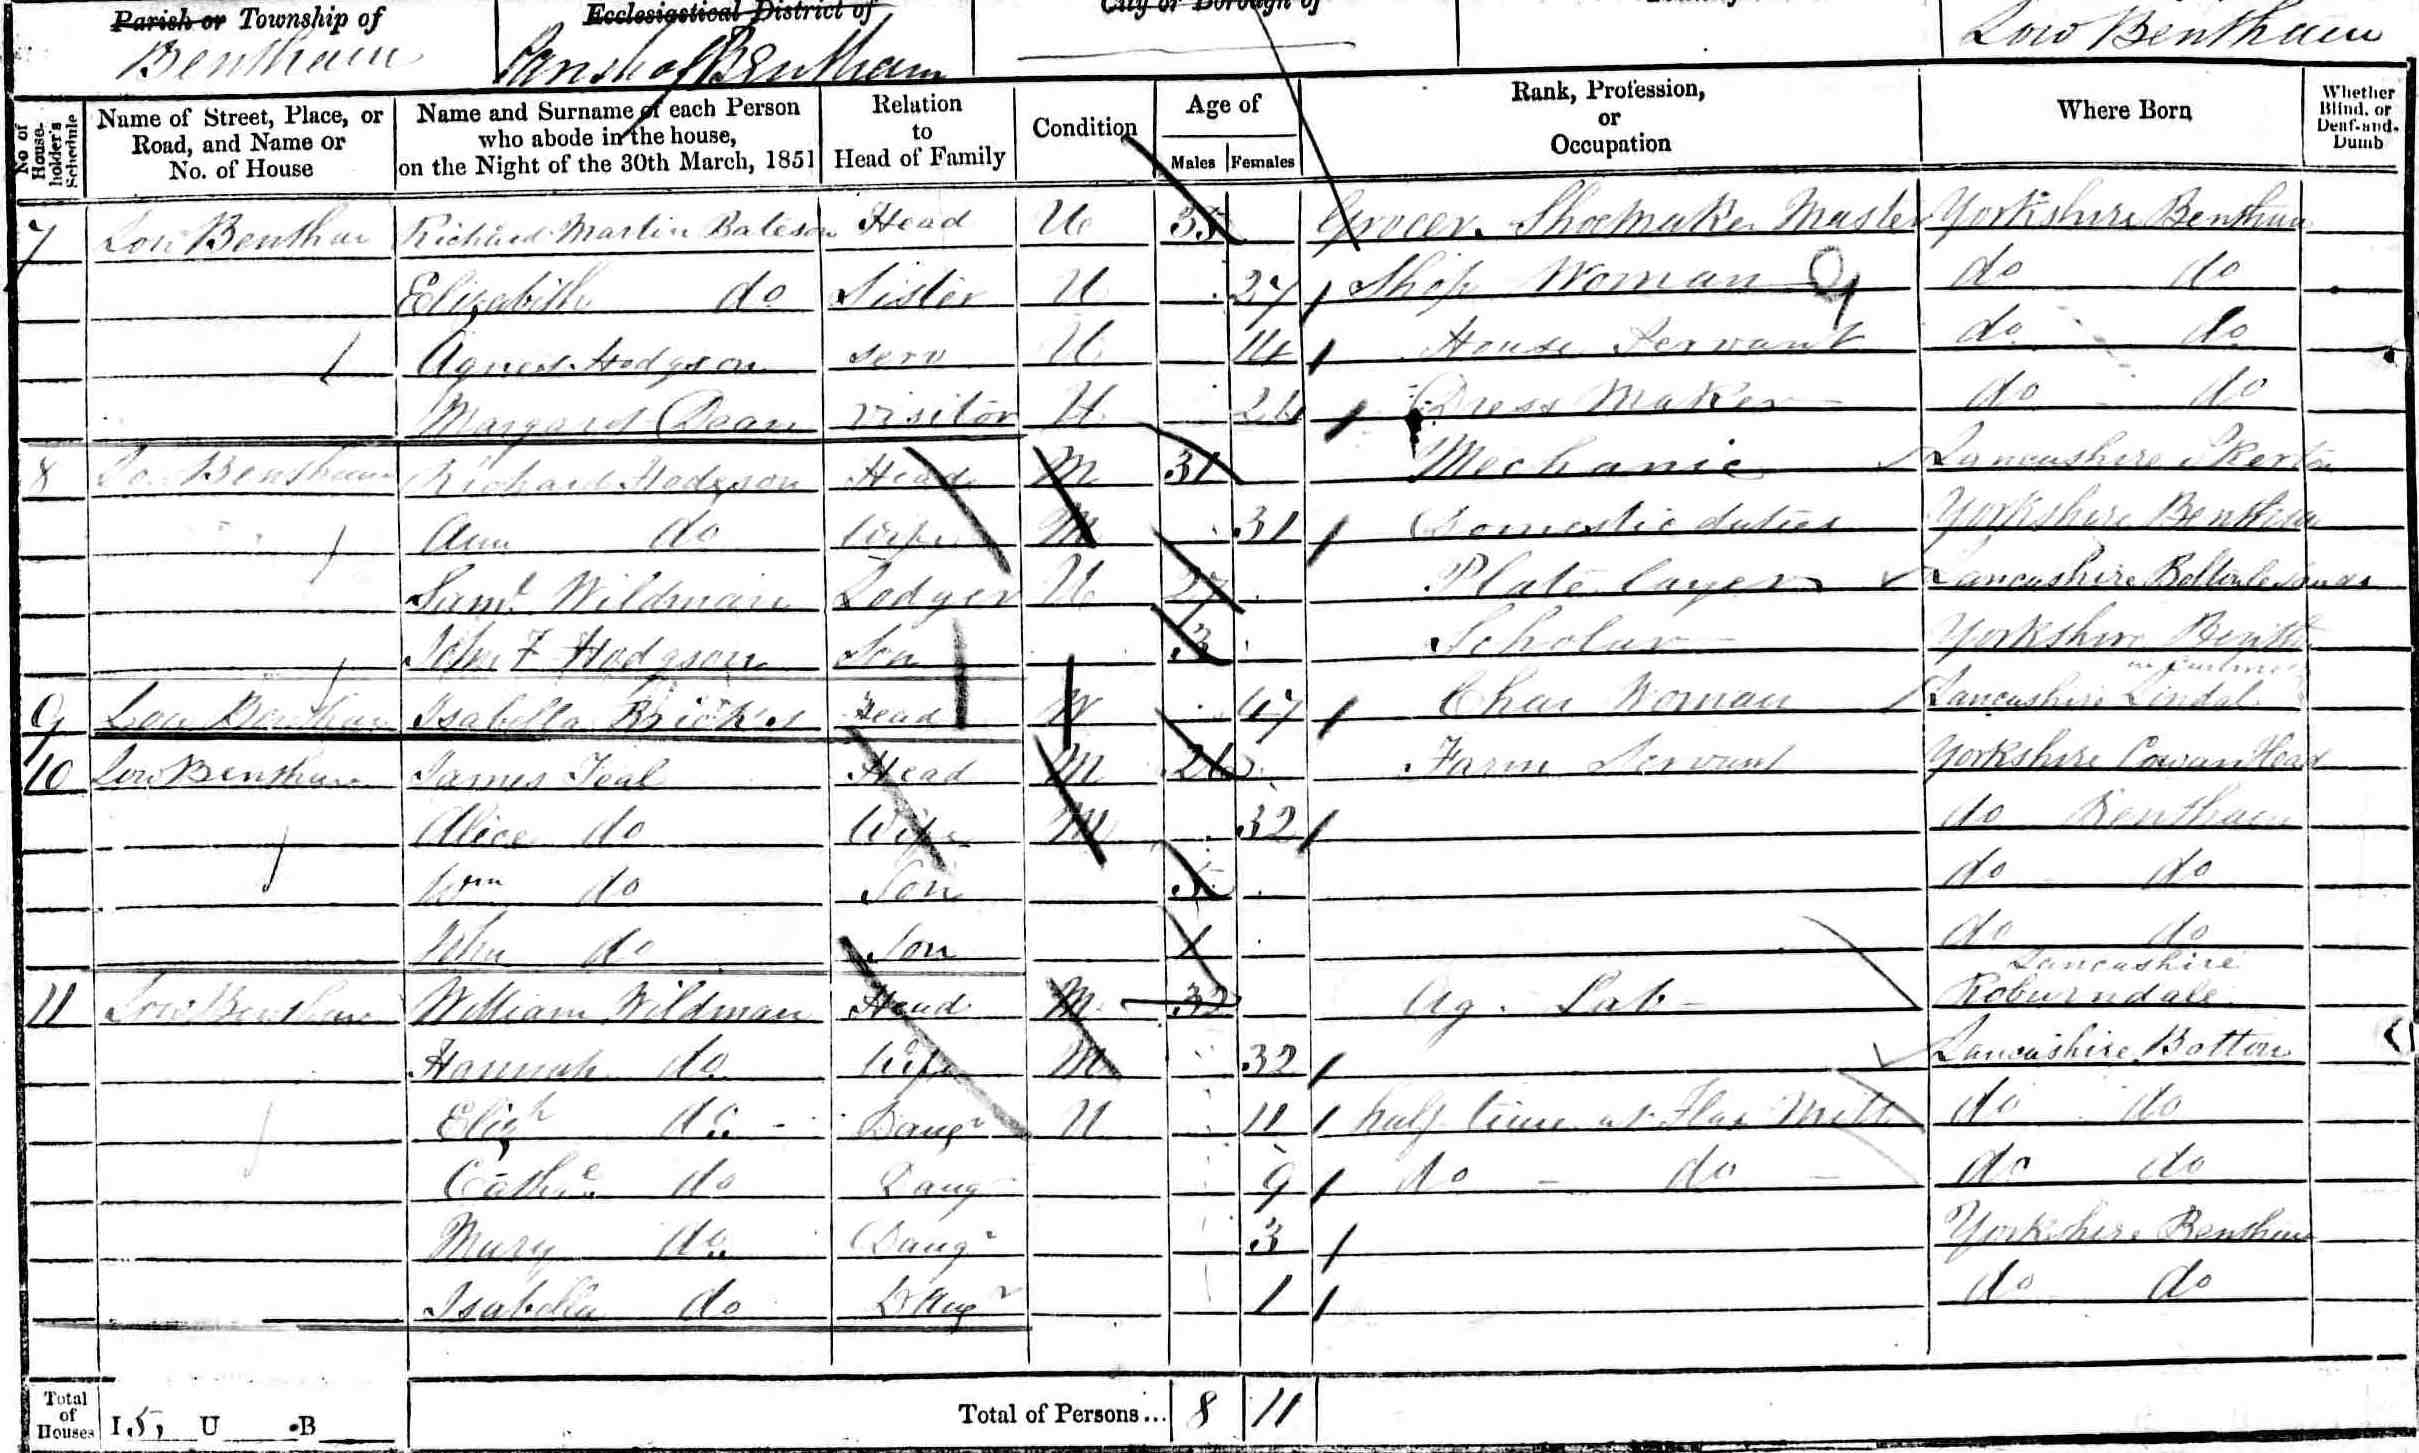 Parish or Township of
Bentham
Ecclesiastical District of
Parish of Bentham
City or Borough of
Low Bentham
No of House-holder's Schedule
Name of Street, Place, or Road, and Name or No. of House
Name and Surname of each Person who abode in the house, on the Night of the 30th March, 1851
Relation to Head of Family
Condition
Age of
Males Females
Rank, Profession, or Occupation
Where Born
Whether Blind, or Deaf-and-Dumb
7 Low Bentham Richard Martin Bateson Head U 35 Grocer. Shoemaker Master Yorkshire Bentham
Elizabeth do Sister U 27 Shop Woman do do
Agnes Hodgson serv U 14 House Servant do do
Margaret Dean visitor U 26 Dress Maker do do
8 Low Bentham Richard Hodgson Head M 31 Mechanic Lancashire Skerton
Ann do Wife M 31 Domestic duties Yorkshire Bentham
Saml Wildman Lodger U 27 Plate layer Lancashire Bolton le Sands
John F Hodgson Son 3 Scholar Yorkshire Bentham
9 Low Bentham Isabella Head W 47 Char Woman Lancashire Lindal
10 Low Bentham James Teal Head M 26 Farm Servant Yorkshire Cowan Head
Alice do Wife M 32 do Bentham
Wm do Son 5 do do
John do Son 1 do do
11 Low Bentham William Wildman Head M 32 Ag. Lab Lancashire Roburndale
Hannah do Wife M 32 Lancashire Botton
Elizh do Daugr U 11 half time at Flax Mill do do
Cathe do Daug 9 do do do do
Mary do Daugr 3 Yorkshire Bentham
Isabella do Daugr 1 do do
Total of Houses I 5, U B
Total of Persons... 8 11